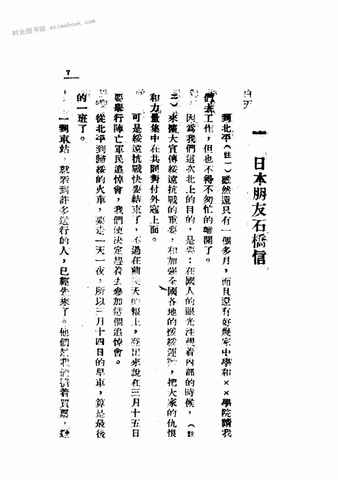 一 日本朋友石橋信
到北平(註一)雖然還只有一個多月,而且還有好幾家中學和××學院請我
們去工作,但也不得不匆忙的離開了。
因為我們這次北上的目的,是要:在國人的眼光注視着內部的時候,(註
二)來擴大宣傳綏遠抗戰的重要,和加強全國各地的援綏運動,把大家的仇恨
和力量集中在共同對付外寇上面。
可是綏遠抗戰快要結束了,不過在前天的報上,登出來說在三月十五日
要舉行陣亡軍民追悼會,我們便決定趕着去參加這個追悼會。
從北平到歸綏的火車,要走一天一夜,所以三月十四日的早車,算是最後
的一班了。
一到車站,就碰到許多送行的人,已經先來了。他們
着買票
7